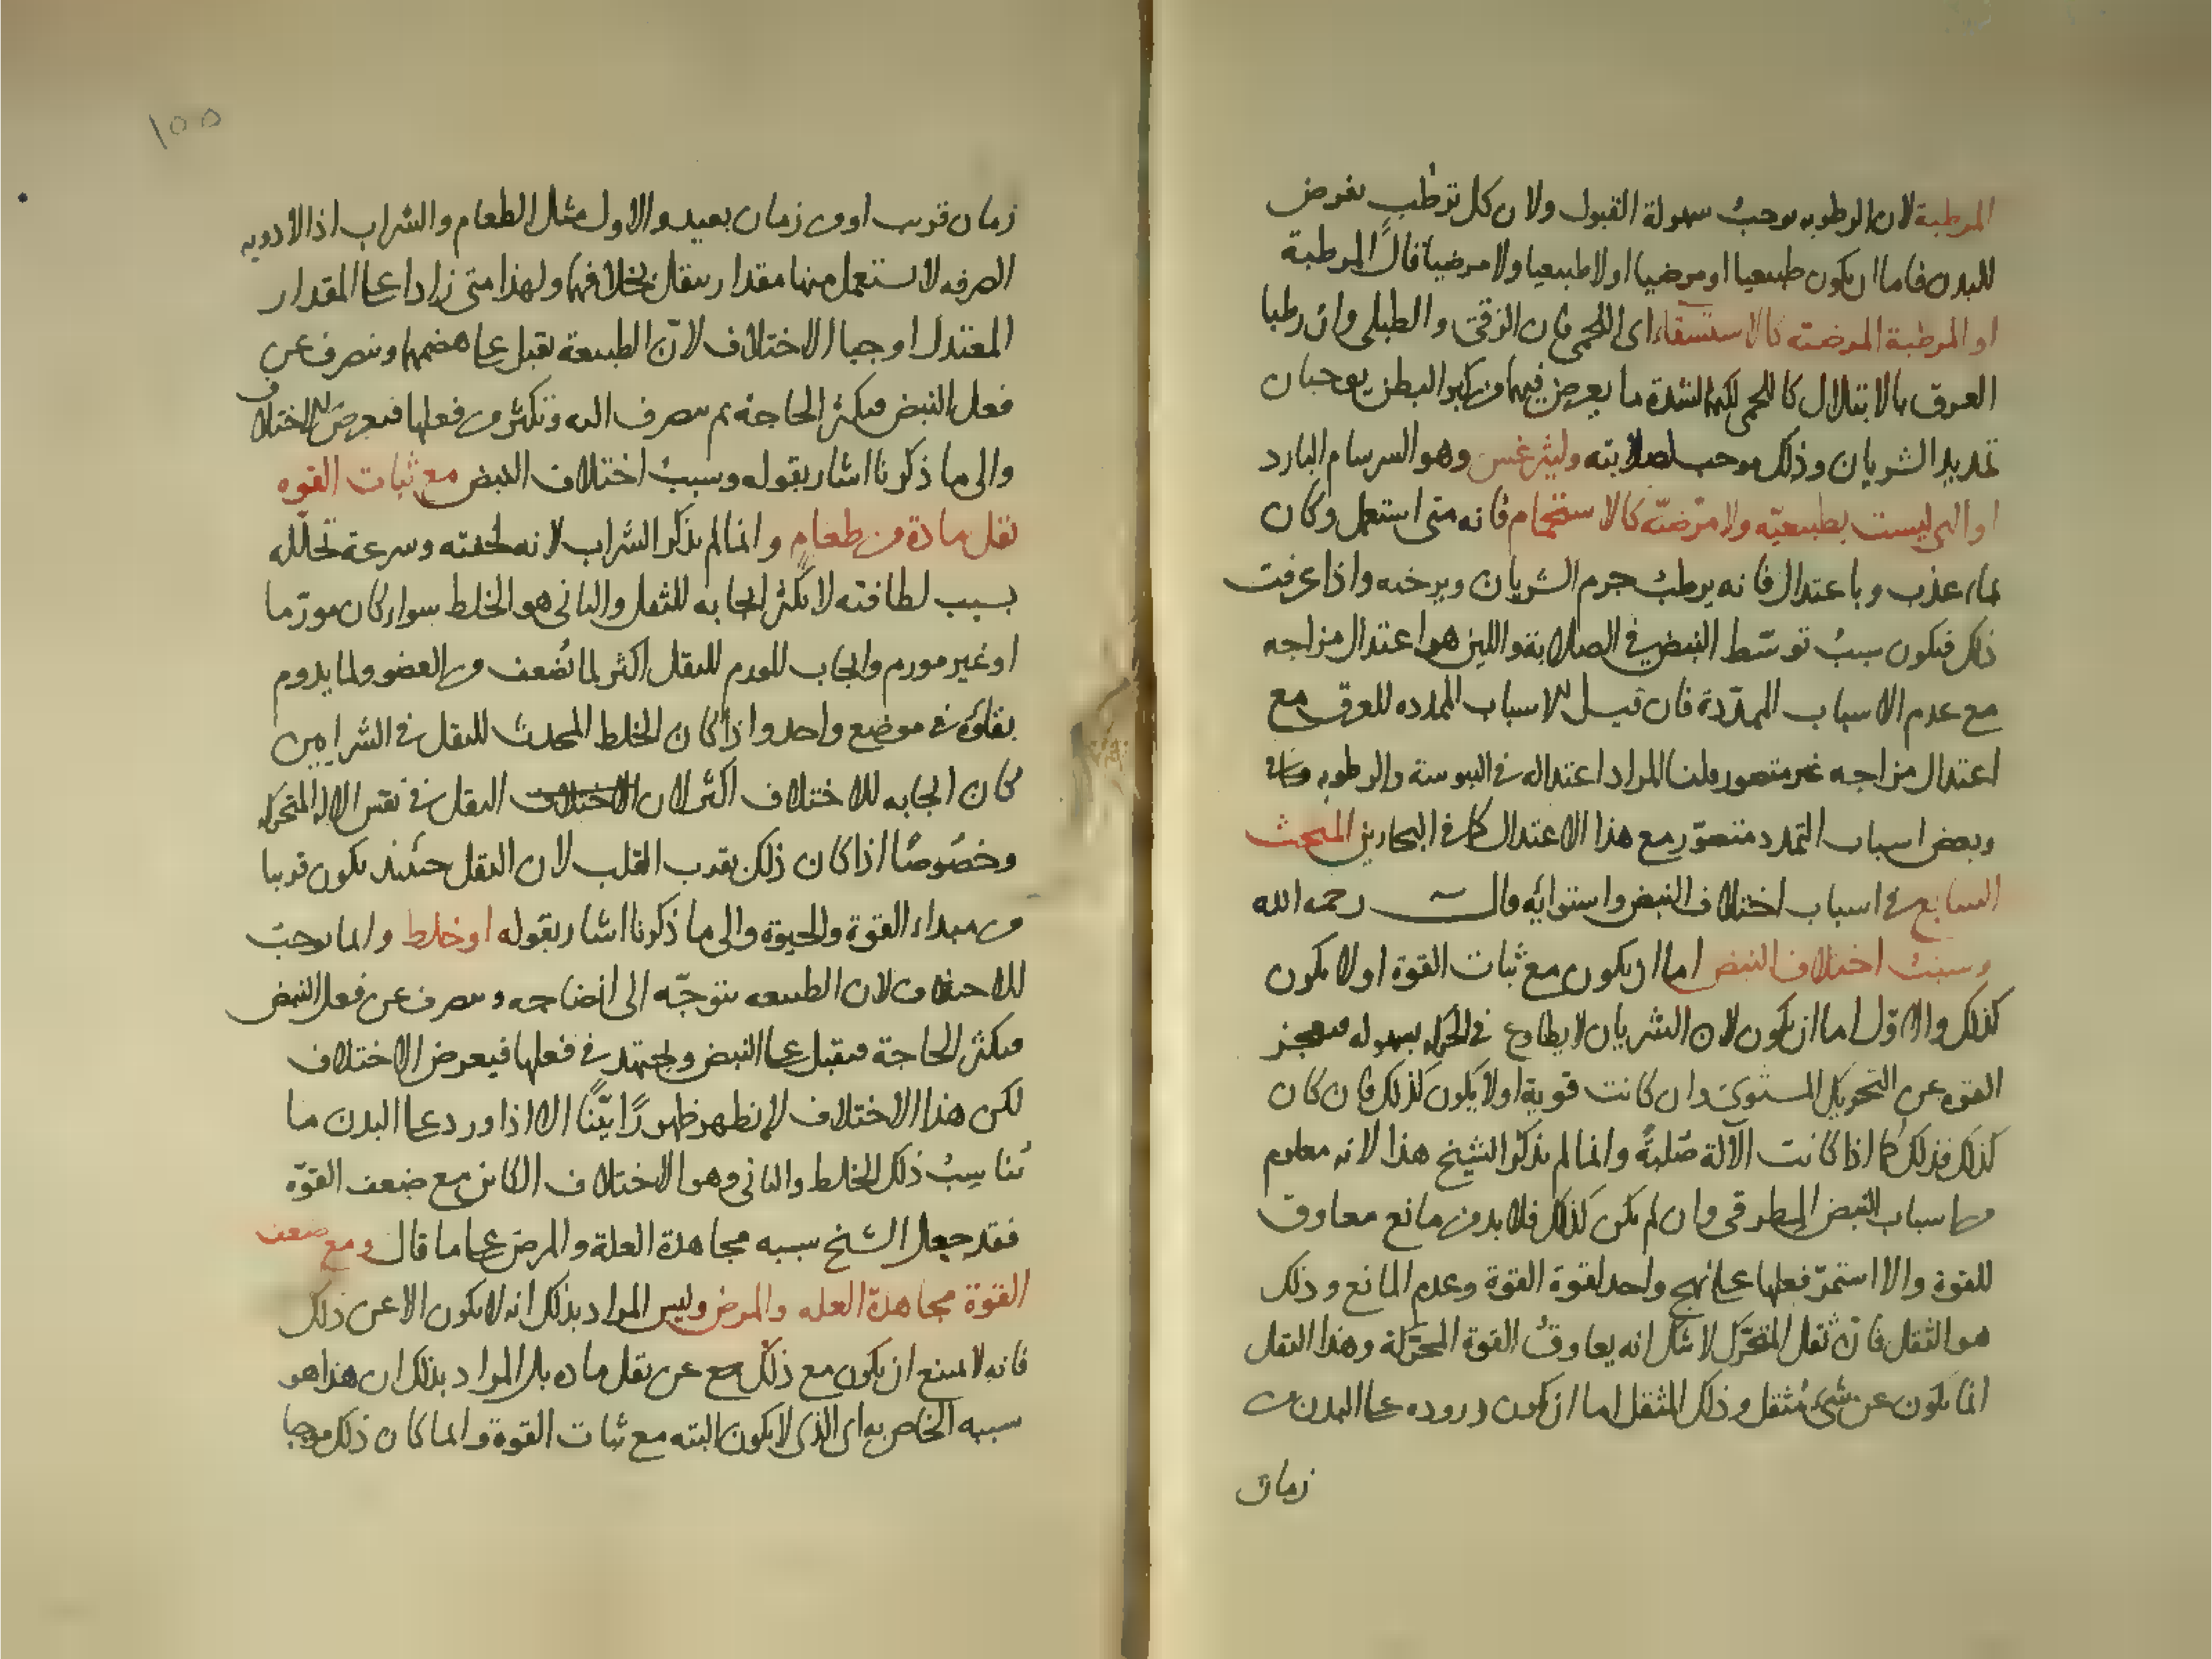 المرطبة لان الرطوبه توجب سهولة القبول ولا ن كل ترطب يفرض
للبدن فاما ان يكون طبيعيا او مرضيا او لا طبيعيا ولا مرضيا قال المرطبة
او المرطبة المرضيّه كالاستسقاء اى اللحمى فان الزقى والطبلى وان رطبا
العرق بالابتلال كاللحمى لكنهما لشدة ما يعرض فيهما من كبر البطن يوجبان
تمديد الشريان وذلك موجب لصلابته وليثرغس وهو السرسام البارد
او التى ليست بطبيعيّه ولا مرضيّه كالاستحمام فانه متى استعمل وكان
بماء عذب وباعتدال فانه يرطب جرم الشريان ويرخيه واذا عرفت
ذلك فيكون سبب توسّط النبض فى الصلابة واللين هو اعتدال مزاجه
مع عدم الاسباب الممدّدة فان قيل الاسباب الممدده للعرق مع
اعتدال مزاجه غير متصور قلنا المراد اعتداله فى اليبوسة والرطوبه
وبعض اسباب التمدد متصوّر مع هذا الاعتدال كما فى البحارين المبحث
السابع فى اسباب اختلاف النبض واستوائه قال رحمه الله
وسبب اختلاف النبض اما ان يكون مع ثبات القوة او لا يكون
كذلك والاوّل اما ان يكون لان الشريان لا يطاوع فى الحركه بسهوله فيعجز
القوه عن التحريك المستوى وان كانت قوية او لا يكون كذلك فان كان
كذلك فذلك كما اذا كانت الآلة صلبةً وانما لم يذكر الشيخ هذا لانه معلوم
من اسباب النبض المطرقى وان لم يكن كذلك فلا بد من مانع معاوق
للقوة والا استمرّ فعلها على نهج واحد لقوة القوة وعدم المانع وذلك
هو الثقل فان ثقل المتحرّك لا شك انه يعاوق القوة المحرّكة وهذا الثقل
انما يكون عن شىء مُثقل وذلك المثقل اما ان يكون وروده على البدن من
زمان
١٥٥
زمان قريب او من زمان بعيد والاول مثل الطعام والشراب اذ الادويه
الصرفه لا يستعمل منها مقدار يثقل بخلافهما ولهذا متى زادا على المقدار
المعتدل اوجبا الاختلاف لانّ الطبيعة تقبل على هضمهما وتنصرف عن
فعل النبض فيكثر الحاجة ثم ينصرف اليه وتكثر من فعلها فيعرض الاختلاف
والى ما ذكرنا اشار بقوله وسبب اختلاف النبض مع ثبات القوه
ثقل مادة من طعام وانما لم يذكر الشراب لانه لخفته وسرعة تحلّله
بسبب لطافته لا يكثر ايجابه للثقل والثانى هو الخلط سواء كان مورّما
او غير مورم وايجاب المورم للثقل اكثر لما يُضعف من العضو ولما يدوم
بقاؤه فى موضع واحد واذا كان الخلط المحدث للثقل فى الشرايين
كان ايجابه للاختلاف اكثر لان الاختلاف الثقل فى نفس الاله المتحركه
وخصوصًا اذا كان ذلك بقرب القلب لان الثقل حينئذ يكون قريبا
من مبداء القوة والحيوة والى ما ذكرنا اشار بقوله او خلط وانما توجب
للاختلاف لان الطبيعه تتوجّه الى انضاجه وتنصرف عن فعل النبض
فيكثر الحاجة فيقبل على النبض ويجتهد فى فعلها فيعرض الاختلاف
لكن هذا الاختلاف لا يظهر ظهورًا بيّنًا الا اذا ورد على البدن ما
يُناسِبُ ذلك الخلط والثانى وهو الاختلاف الكائن مع ضعف القوّة
فقد جعل الشيخ سببه مجاهدة العلة والمرض على ما قال ومع ضعف
القوة مجاهدة العله والمرض وليس المراد بذلك انه لا يكون الا عن ذلك
فانه لا يمتنع ان يكون مع ذلك عن ثقل ماده بل المراد بذلك ان هذا هو
سببه الخاص به اى الذى لا يكون البته مع ثبات القوة وانما كان ذلك موجبا